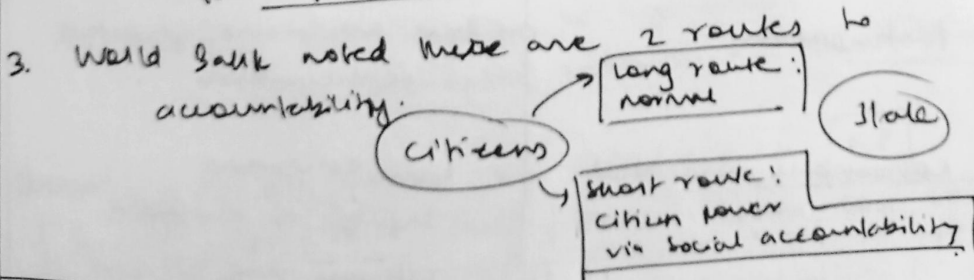 3. World Bank noted there are 2 routes to
accountability.
Citizens
Long route:
normal
State
Short route:
citizen power
via social accountability.